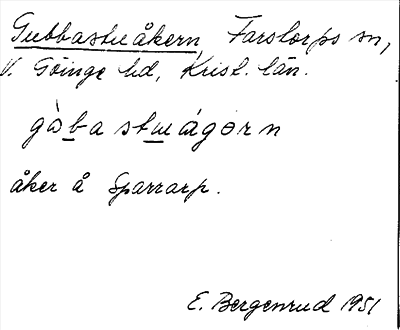 Gubbastuåkern, Farstorps sn,
V. Göinge hd, Krist. län.
gòba stuågərn
åker å Sparrarp.
E. Bergenrud 1951